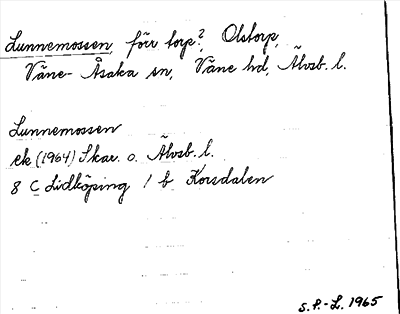 Lunnemossen, förr torp?, Olstorp,
Väne-Åsaka sn, Väne hd, Älvsb. l.
Lunnemossen
ek (1964) Skar. o. Älvsb. l.
8 C Lidköping 1 b Korsdalen
S. P.-L. 1965